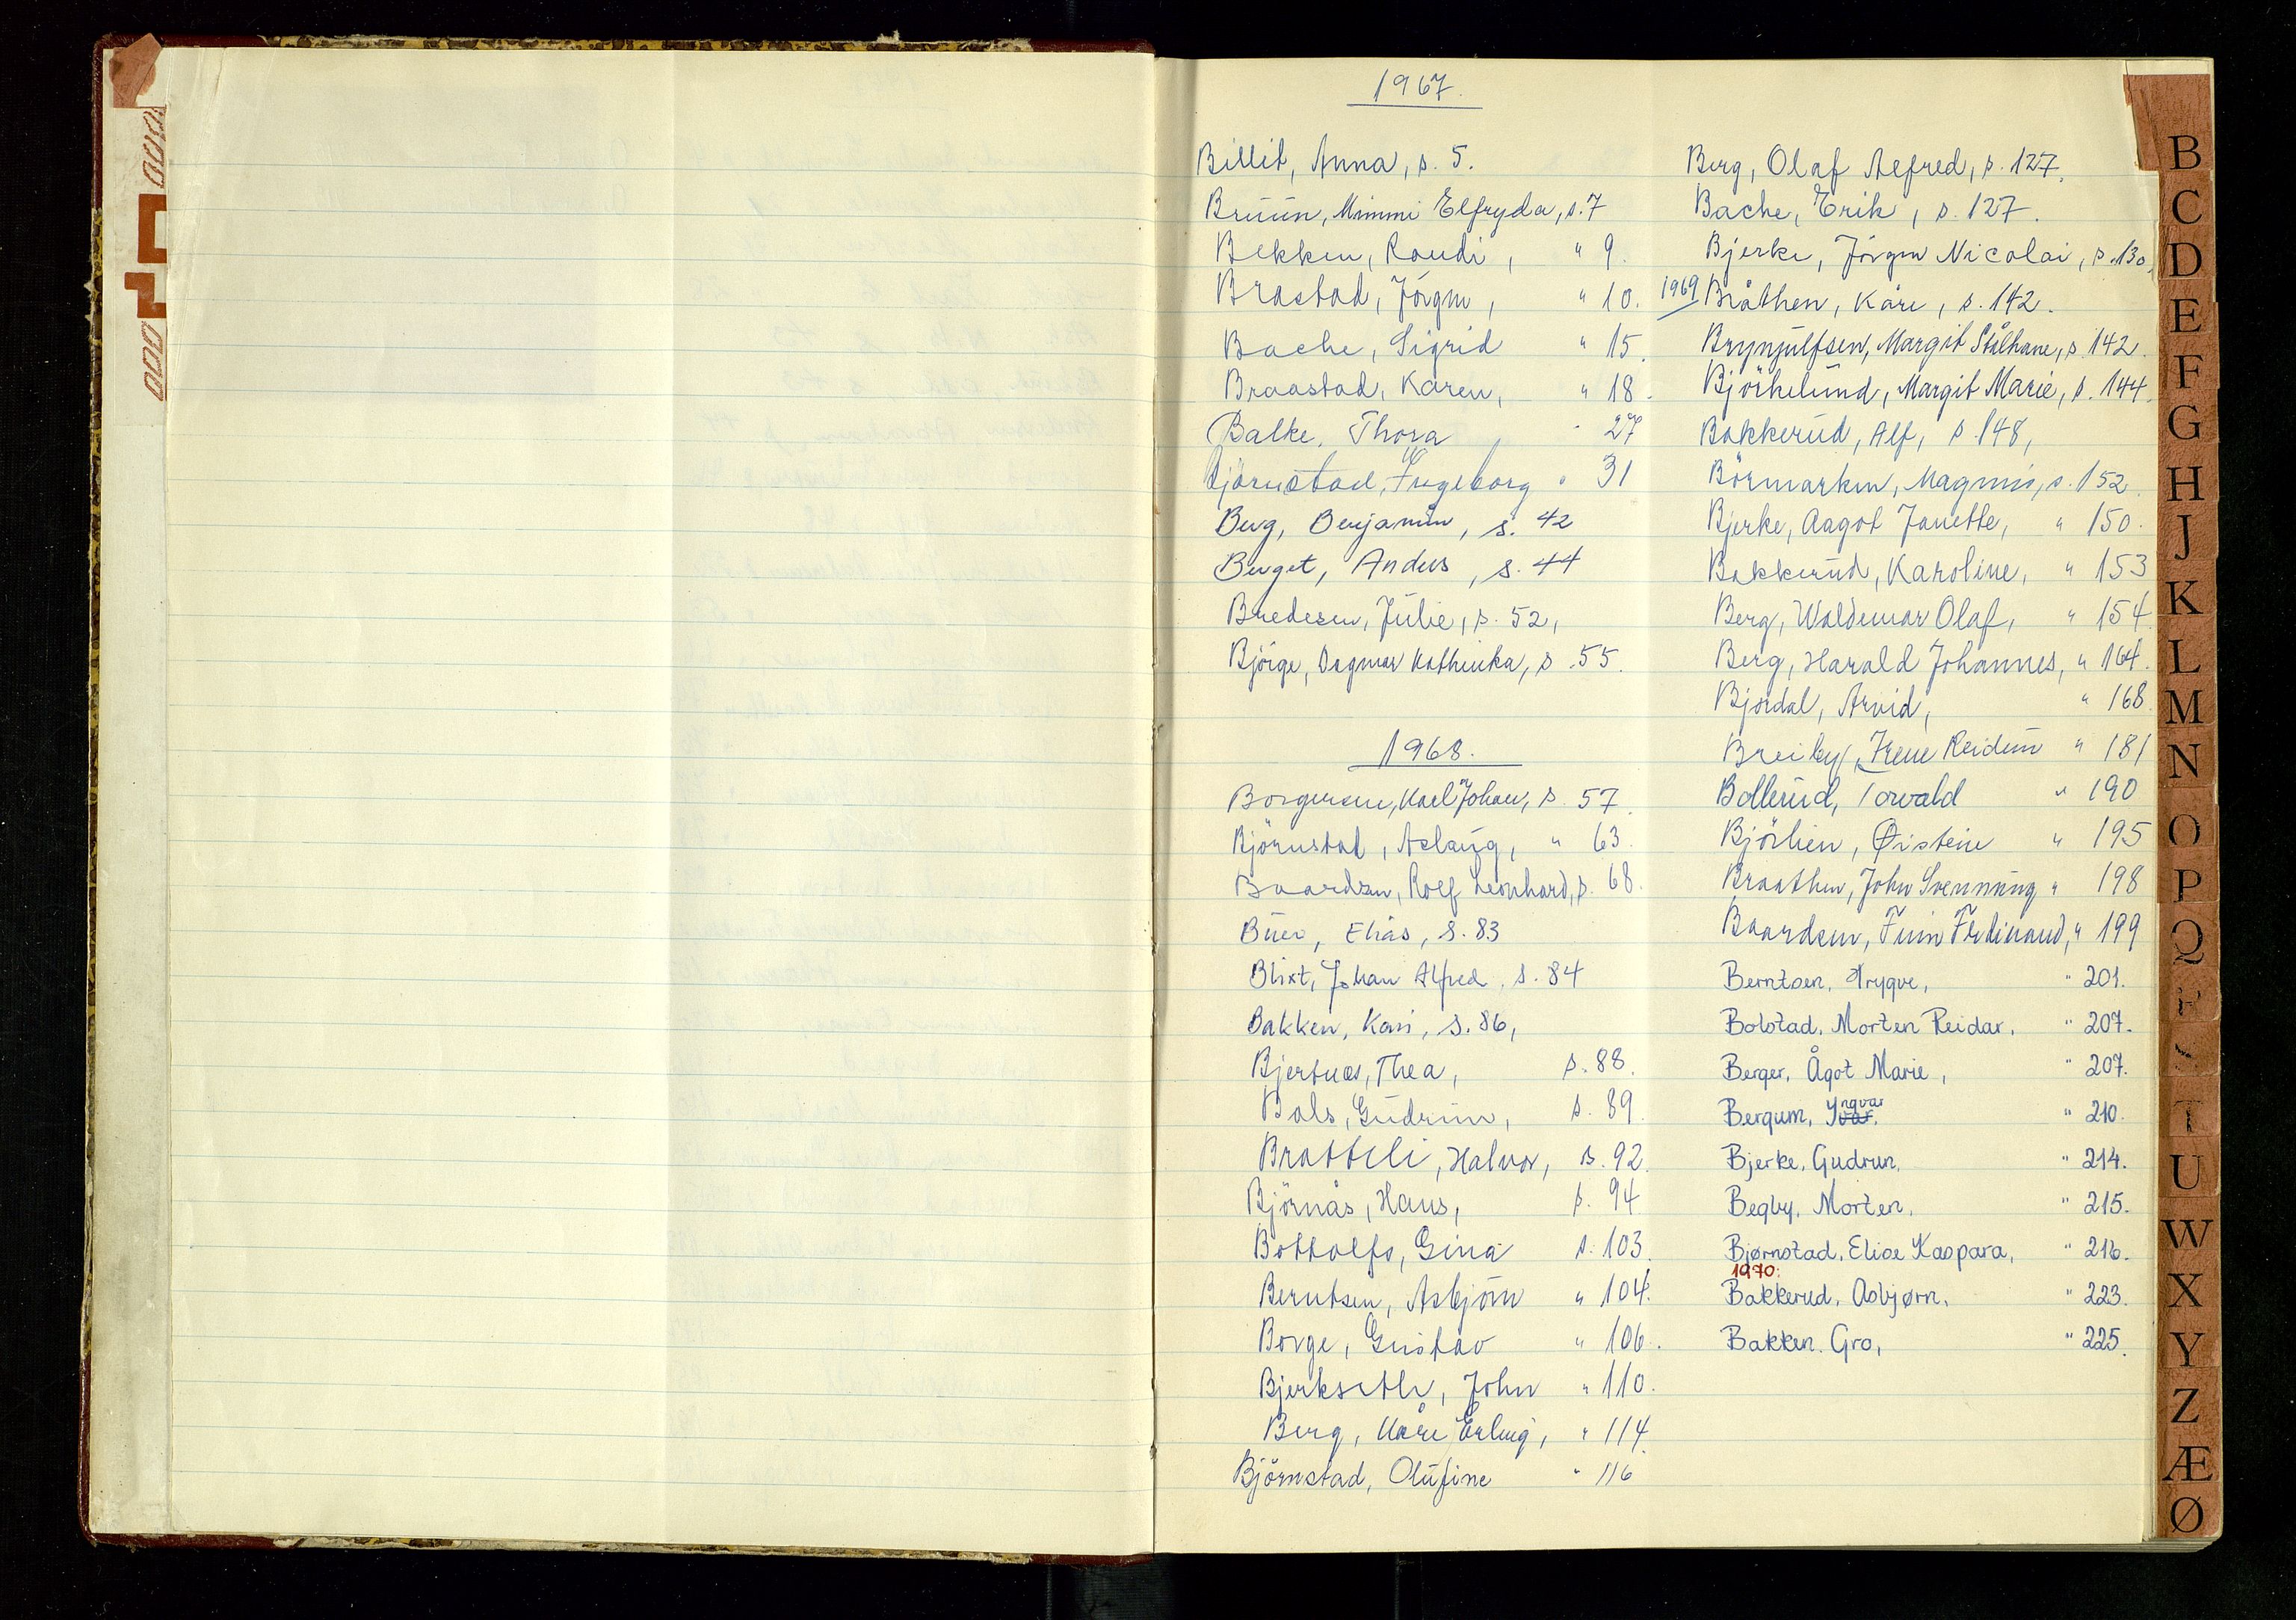 1967.
Billit, Anna, s. 5.
Bruun, Mimmi Elfryda, s. 7
Bekken, Randi, " 9.
Brastad, Jörgen, " 10.
Bache, Sigrid " 15.
Braastad, Karen, " 18.
Balke, Thora, " 27
Björnstad, Ingeborg " 31
Berg, Benjamin, s. 42
Berget, Anders, s. 44
Bredesen, Julie, s. 52,
Björge, Dagmar Kathinka, s. 55.
1968.
Borgersen, Karl Johan, s. 57.
Björnstad, Aslaug, " 63.
Baardsen, Rolf Leonhard, s. 68.
Buer, Elias, s. 83
Blixt, Johan Alfred, s. 84
Bakken, Kari, s. 86,
Bjertnæs, Thea, s. 88.
Bals, Gudrun, s. 89.
Bratteli, Halvor, s. 92.
Björnås, Hans, s. 94.
Bottolfs, Gina s. 103.
Berntsen, Asbjörn " 104.
Borge, Gustav " 106.
Bjerkseth, John " 110.
Berg, Kåre Erling, " 114.
Björnstad, Olufine " 116
Berg, Olaf Alfred, s. 127.
Bache, Erik, s. 127.
Bjerke, Jörgen Nicolai, s. 130.
1969 Bråthen, Kåre, s. 142.
Brynjulfsen, Margit Stålhane, s. 142.
Björkelund, Margit Marie, s. 144.
Bakkerud, Alf, s. 148,
Börmarken, Magnus, s. 152.
Bjerke, Aagot Janette, " 150.
Bakkerud, Karoline, " 153
Berg, Waldemar Olaf, " 154
Berg, Harald Johannes, " 164.
Bjordal, Arvid, " 168.
Breiby, Irene Reidun " 181
Bollerud, Torvald " 190
Björlien, Øistein " 195
Braathen, John Svenning " 198
Baardsen, Finn Ferdinand, " 199
Berntsen, Trygve, " 201.
Bolstad, Morten Reidar, " 207.
Berger, Ågot Marie, " 207.
Bergum, Yvar. ngvar " 210.
Bjerke, Gudrun, " 214.
Begby, Morten, " 215.
Bjørnstad, Elise Kaspara, " 216.
1970:
Bakkerud, Asbjørn, " 223.
Bakken, Gro, " 225.
B
C
D
E
F
G
H
J
K
L
M
N
O
P
Q
R
S
T
U
W
X
Y
Z
Æ
Ø